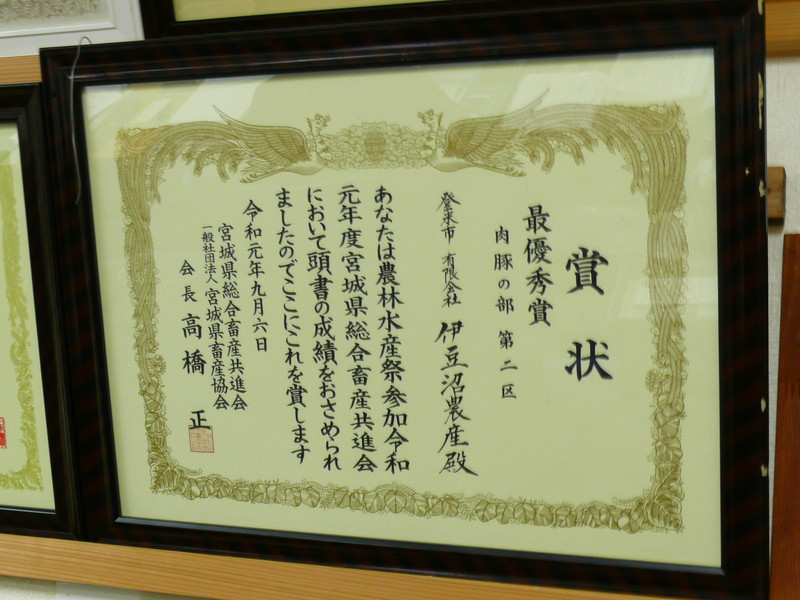 賞状
最優秀賞
肉豚の部 第二区
登米市 有限会社 伊豆沼農産殿
あなたは農林水産祭参加令和
元年度宮城県総合畜産共進会
において頭書の成績をおさめられ
ましたのでここにこれを賞します
令和元年九月六日
宮城県総合畜産共進会
一般社団法人宮城県畜産協会
会長 高橋 正